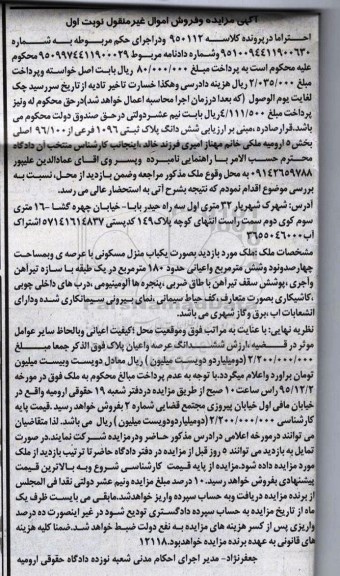 آگهی مزایده وفروش اموال غیرمنقول نوبت اول
احتراما درپرونده کلاسه ۹۵۰۱۱۲ ودراجرای حکم مربوطه به شماره
۹۵۱۰۰۹۴۴۱۱۹۰۰۶۳۰ وشماره دادنامه مربوط ۹۵۰۹۹۷۴۴۱۱۹۰۰۰۲۹ محکوم
علیه محکوم است به پرداخت مبلغ ۸۰/۰۰۰/۰۰۰ ریال بابت اصل خواسته وپرداخت
مبلغ ۲/۰۳۵/۰۰۰ ریال هزینه دادرسی وهکذا خسارت تاخیر تادیه از تاریخ سررسید چک
لغایت یوم الوصول (که بعدا درزمان اجرا محاسبه اعمال خواهد شد)درحق محکوم له ونیز
پرداخت مبلغ ۴/۱۱۱/۵۰۰ریال بابت نیم عشردولتی درحق صندوق دولت محکوم می
باشد.قرارصادره ،مبنی بر ارزیابی شش دانگ پلاک ثبتی ۱۰۹۶ فرعی از۹۶/۱۰۰ اصلی
بخش ۵ ارومیه ملکی خانم مهناز امیری فرزند خالد ،اینجانب کارشناس منتخب آن دادگاه
محترم حسب الامر با راهنمایی نامبرده وپسر وی اقای عمادالدین علیپور
۰۹۱۴۲۶۵۹۷۸۸ به محل وقوع ملک مذکور مراجعه وضمن بازدید از محل،نسبت به
بررسی موضوع اقدام نمودم که نتیجه بشرح آتی به استحضار عالی می رسد.
آدرس: شهرک شهریار ۳۲ متری اول سه راه حیدر بابا- خیابان چهره گشا -۱۶ متری
سوم کوی دوم سمت راست انتهای کوچه پلاک۱۴۹ کدپستی ۵۷۱۴۱۶۱۴۸۳۷ اشتراک
آب۳۶۵۵۰۴۶۰۰۰
مشخصات ملک :ملک مورد بازدید بصورت یکباب منزل مسکونی با عرصه ی وبمساحت
چهارصدونود وشش مترمربع واعیانی حدود ۱۸۰ مترمربع در یک طبقه با سازه تیرآهن
وآجری،پوشش سقف تیرآهن با طاق ضربی ،پنجره ها آلومینیومی ،درب های داخلی چوبی
،کاشیکاری بصورت متعارف،کف حیاط سیمانی ،نمای بیرونی سیمانکاری شده ودارای
انشعابات اب ،برق وگاز شهری می باشد.
نظریه نهایی: با عنایت به مراتب فوق وموقعیت محل ؛کیفیت اعیانی وبالحاظ سایر عوامل
موثر در قضیه ،ارزش ششدانگ عرصه واعیان پلاک فوق الذکر جمعا مبلغ
۲/۲۰۰/۰۰۰/۰۰۰ (دومیلیاردو دویست میلیون ) ریال معادل دویست وبیست میلیون
تومان براورد واعلام میگردد.با توجه به عدم پرداخت مبالغ محکوم به ملک فوق در مورخه
۹۵/۱۲/۲ راس ساعت ۱۰ صبح از طریق مزایده دردفتر شعبه ۱۹ حقوقی ارومیه واقع در
خیابان مافی اول خیابان پیروزی مجتمع قضایی شماره ۲ بفروش خواهد رسید .قیمت پایه
کارشناسی ۲/۲۰۰/۰۰۰/۰۰۰ (دومیلیاردودویست میلیون) ریال می باشد. لذا متقاضیان
می توانند درمورخه اعلامی درادرس مذکور حاضر ودرمزایده شرکت نمایند.در صورت
تمایل به بازدید می توانند ۵ روز قبل از مزایده در دفتر دادگاه حاضرتا ترتیب بازدید از ملک
مورد مزایده داده شود.مزایده از پایه قیمت کارشناسی شروع وبه بالاترین قیمت
پیشنهادی بفروش خواهد رسید.۱۰ درصد مبلغ مزایده ونیم عشر دولتی نقدا فی المجلس
از برنده مزایده دریافت وبه حساب سپرده واریز خواهدشد.مابقی می بایست ظرف یک
ماه از تاریخ مزایده به حساب سپرده دادگستری تودیع شود در غیر اینصورت ده درصد
واریزی پس از کسر هزینه های مزایده به نفع دولت ضبط خواهد شد.ضمنا کلیه هزینه
های قانونی به عهده برنده مزایده خواهدبود.۱۲۱۱۸
جعفرنژاد- مدیر اجرای احکام مدنی شعبه نوزده دادگاه حقوقی ارومیه